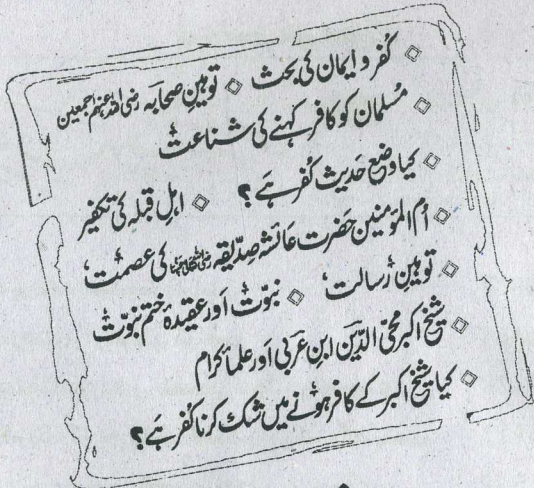 ◇ کفر و ایمان کی بحث ◇ توہینِ صحابہ رضی اللہ عنہم اجمعین
◇ مُسلمان کو کافر کہنے کی شناعت
◇ کیا وضعِ حَدیث کُفر ہَے؟ ◇ اہلِ قبلہ کی تکفیر
◇ اُم المؤمنین حَضرت عَائشہ صِدّیقہ رضی اللہ عنہا کی عصمت،
◇ توہینِ رسالت، ◇ نبوّت اَور عقیدۂ ختمِ نبوّت
◇ شیخ اکبر محیّ الدّین ابنِ عَربی اَور علمائکرام
◇ کیا شیخ اکبر کے کافر ہونے میں شک کرنا کُفر ہَے؟